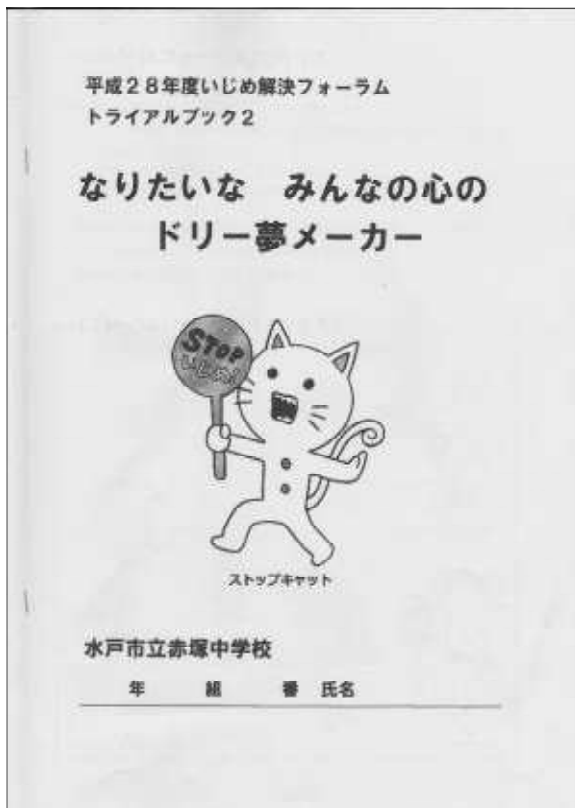 平成２８年度いじめ解決フォーラム
トライアルブック２
なりたいな　みんなの心の
ドリー夢メーカー
STOP
いじめ！
ストップキャット
水戸市立赤塚中学校
年　　組　　番　氏名